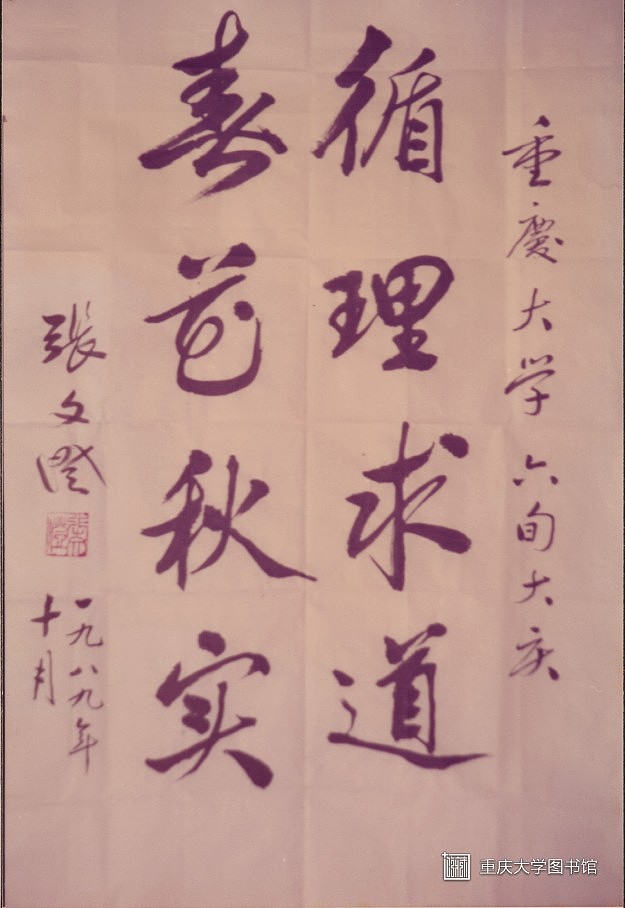 重慶大学六旬大庆
循理求道
春花秋实
張文澄
一九八九年
十月
重庆大学图书馆